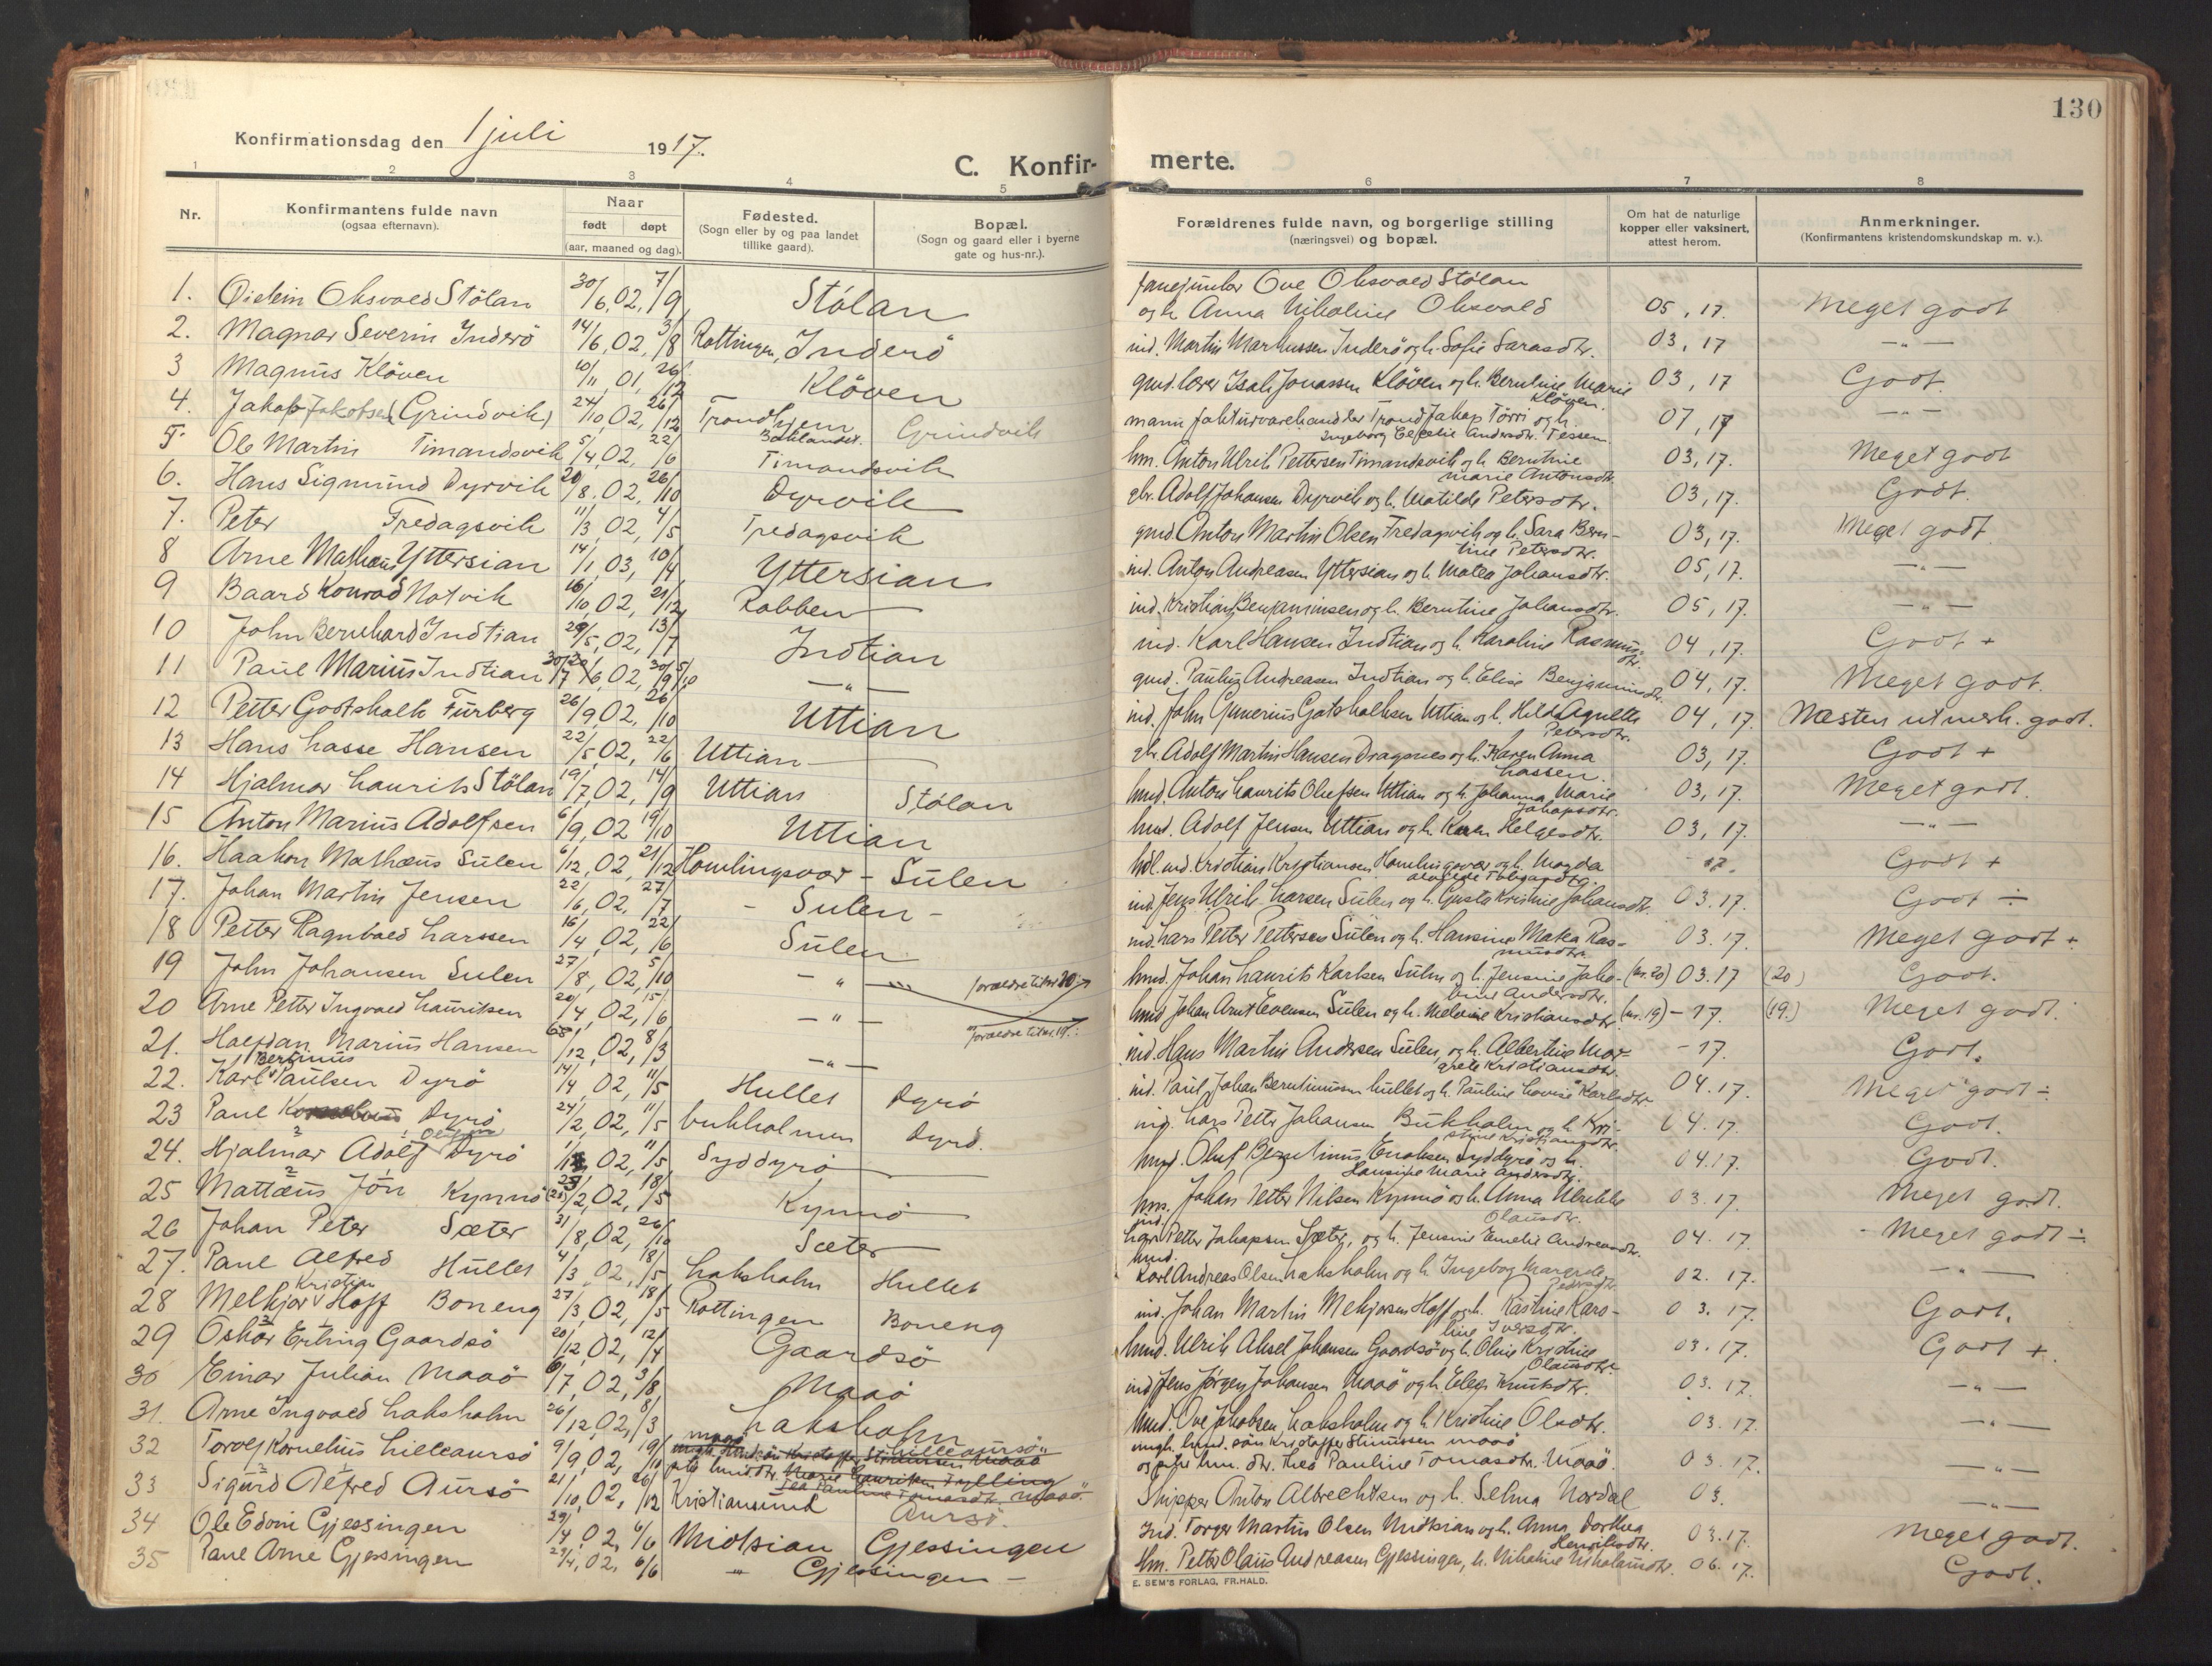 130
Konfirmationsdag den 1 juli 1917.
C. Konfir- merte.
1 2 3 4 5 6 7 8
Nr.
Konfirmantens fulde navn
(ogsaa efternavn).
Naar
født døpt
(aar, maaned og dag).
Fødested.
(Sogn eller by og paa landet
tillike gaard).
Bopæl.
(Sogn og gaard eller i byerne
gate og hus-nr.).
Forældrenes fulde navn, og borgerlige stilling
(næringsvei) og bopæl.
Om hat de naturlige
kopper eller vaksinert,
attest herom.
Anmerkninger.
(Konfirmantens kristendomskundskap m. v.).
1. Oksvold Stölan 30/6, 02, 7/9 Stölan Ove Oksvold Stölan
og h. Anna Nikoline Oksvold 05, 17. Meget godt
2. Magnar Severin Inderö 14/6, 02, 3/8 Rottingen, Inderö ind. Martin Markussen Inderö og h. Sofie Larsdtr. 03, 17 —"—
3 Magnus Klöven 10/11, 01, 26/12 Klöven Isak Jonassen Klöven og h. Berntine Marie
Klöven. 03, 17 Godt.
4. Jakob Jakobsen (Grindvik) 24/10, 02, 26/12 Trondhjem
Baklandet. Grindvik Trond Jakop Törri og h.
Ingeborg Andersdtr. Tessem. 07, 17 —"—
5 Ole Martin Timandsvik 5/4, 02, 22/6 Timandsvik hm. Anton Ulrik Pettersen Timandsvik og h. Berntine
Marie Antonsdtr. 03, 17. Meget godt
6. Hans Sigmund Dyrvik 20/8, 02, 26/10 Dyrvik gbr. Adolf Johansen Dyrvik og h. Matilde Petersdtr. 03, 17. Godt.
7. Peter Fredagsvik 11/3, 02, 4/5 Fredagsvik gmd. Anton Martin Olsen Fredagsvik og h. Sara Bern-
tine Petersdtr. 03, 17. Meget godt
8 Arne Yttersian 14/1, 03, 10/4 Yttersian ind. Anton Andreasen Yttersian og h. Matea Johansdtr. 05, 17. —"—
9 Baard Konrad Notvik 16/10, 02, 21/12 Rabben ind. Kristian Benjaminsen og h. Berntine Johansdtr. 05, 17. —"—
10 John Bernhard Indtian 29/5, 02, 13/7 Indtian ind. Karl Hansen Indtian og h. Karoline Rasmus-
dtr. 04, 17. Godt +
11 Paul Marius Indtian —"— gmd. Paulus Andreasen Indtian og h. Elise Benjaminsdtr. 04, 17. Meget godt.
12 Petter Godtskalk Furberg 26/9, 02, 26/10 Uttian ind. John Gunerius Gotskalksen Uttian og h. Hilda Agnette
Petersdtr. 04, 17. Næsten utmerk. godt.
13 Hans Lasse Hansen 22/5, 02, 22/6 Uttian gbr. Adolf Martin Hansen Dragsnes og h. Karen Anna
Lassen. 03, 17. Godt +
14 Hjalmar Laurits Stölan 19/7, 02, 14/9 Uttian Stölan hmd. Anton Laurits Olufsen Uttian og h. Johanna Marie
Jakopsdtr. 03, 17. Meget godt.
15 Anton Marius Adolfsen 6/9, 02 19/10 Uttian hmd. Adolf Jensen Uttian og h. Karen Helgesdtr. 03, 17. —"—
16. Haakon Mathæus Sulen 6/12, 02, 21/12 Homlingsvær - Sulen Kristian Kristiansen Homlingsvær og h. Magda 17. Godt +
17. Johan Martin Jensen 22/6, 02, 27/7 - Sulen - ind. Jens Ulrik Larsen Sulen og h. Gusta Kristine Johansdtr. 03. 17. Godt ÷
18 Petter Ragnvald Larssen 16/4, 02, 22/6 Sulen ind. Lars Petter Pettersen Sulen og h. Hansine Matea Ras-
musdtr. 03. 17. Meget godt ÷
19 John Johansen Sulen 27/8, 02, 5/10 —"— forældre til nr 20 hmd. Johan Laurits Karlsen Sulen og h. Jensine Jako-
bine Andersdtr. (nr. 20) 03. 17 (20) Godt.
20 Arne Petter Ingvald Lauritsen 20/4, 02, 15/6 —"— forældre til nr. 19. hmd Johan Arnt Evensen Sulen og h. Kristiansdtr. (nr. 19) - 17. (19.) Meget godt.
21. Halfdan Marius Hansen /12, 02, 8/3 —"— ind. Hans Martin Andersen Sulen, og h. Albertine Mar-
grete Kristiansdtr. - 17. Godt.
22. Karl Bertinus Paulsen Dyrö 14/4, 02, 11/5 Hullet Dyrö ind. Paul Johan Berntinussen Hullet og h. Pauline Lovise Karlsdtr. 04. 17. Meget godt ÷
23 Paul Dyrö 24/2, 02, 11/5 Bukholmen Dyrö. ind. Lars Petter Johansen Bukholm og h. Kri-
stine Kristiansdtr. 04. 17. Godt.
24. Hjalmar Adolf Dyrö 02, 11/5 Syddyrö hmd. Oluf Berntinus Syddyrö og h.
Hansine Marie Andersdtr. 04. 17. Godt.
25 Mattæus Jön Kynnö /2, 02, 18/5 Kynnö Johan Petter Nilsen Kynnö og h. Anna Ulrikke
Olausdtr. 03. 17. Meget godt.
26 Johan Peter Sæter 31/8, 02, 26/10 Sæter ind. Petter Jakopsen Sæter, og h. Jensine Emelie Andreasdtr. 04. 17. - Meget godt ÷
27. Paul Alfred Hullet 4/3, 02, 18/5 Laksholm Hullet hmd. Karl Andreas Olsen Laksholm og h. Ingeborg Margrete
Pedersdtr. 02. 17. —"—
28 Melkjor Kristian Hoff Boneng 27/3, 02, 18/5 Rottingen Boneng ind. Johan Martin Mekjorsen Hoff og h. Kastine Karo-
line Iversdtr. 03. 17. Godt.
29 Oskar Erling Gaardsö 20/12, 02, 12/4 Gaardsö hmd. Ulrik Aksel Johansen Gaardsö og h. Oline Kristine
Olausdtr. 03. 17. Godt +.
30 Einar Julian Maaö 6/7, 02, 3/8, Maaö ind Jens Jörgen Johansen Maaö og h. Knutsdtr. 03. 17. —"—
31. Arne Ingvald Laksholm 26/12, 02, 8/3 Laksholm hmd. Ove Jakobsen Laksholm og h. Kristine Olsdtr. 03. 17. —"—
32 Torolf Kornelius Lilleaursö 9/9, 02, 19/10 Maaö Lilleaursö ungk. hmd. sön Kristoffer Stinussen Maaö
og pike hm. dtr. Thea Pauline Tomasdtr. Maaö. 03. 17. —"—
33 Sigurd Alfred Aursö 21/10, 02, 26/12 Kristiansund Aursö. Skipper Anton Albrechtsen og h. Selma Nordal 03. —"—
34 Ole Edvin Gjessingen 29/4, 02, 6/6 Midtsian Gjessingen Ind. Torger Martin Olsen Midtsian og h. Anna Dorthea
Henriksdtr. 03. 17. Meget godt.
35 Paul Arne Gjessingen 29/4, 02, 6/6 " Gjessingen - Hm. Petter Olaus Andreasen Gjessingen, h. Nikoline Nikolausdtr. 06. 17. Godt.
E. SEM'S FORLAG, FR.HALD.